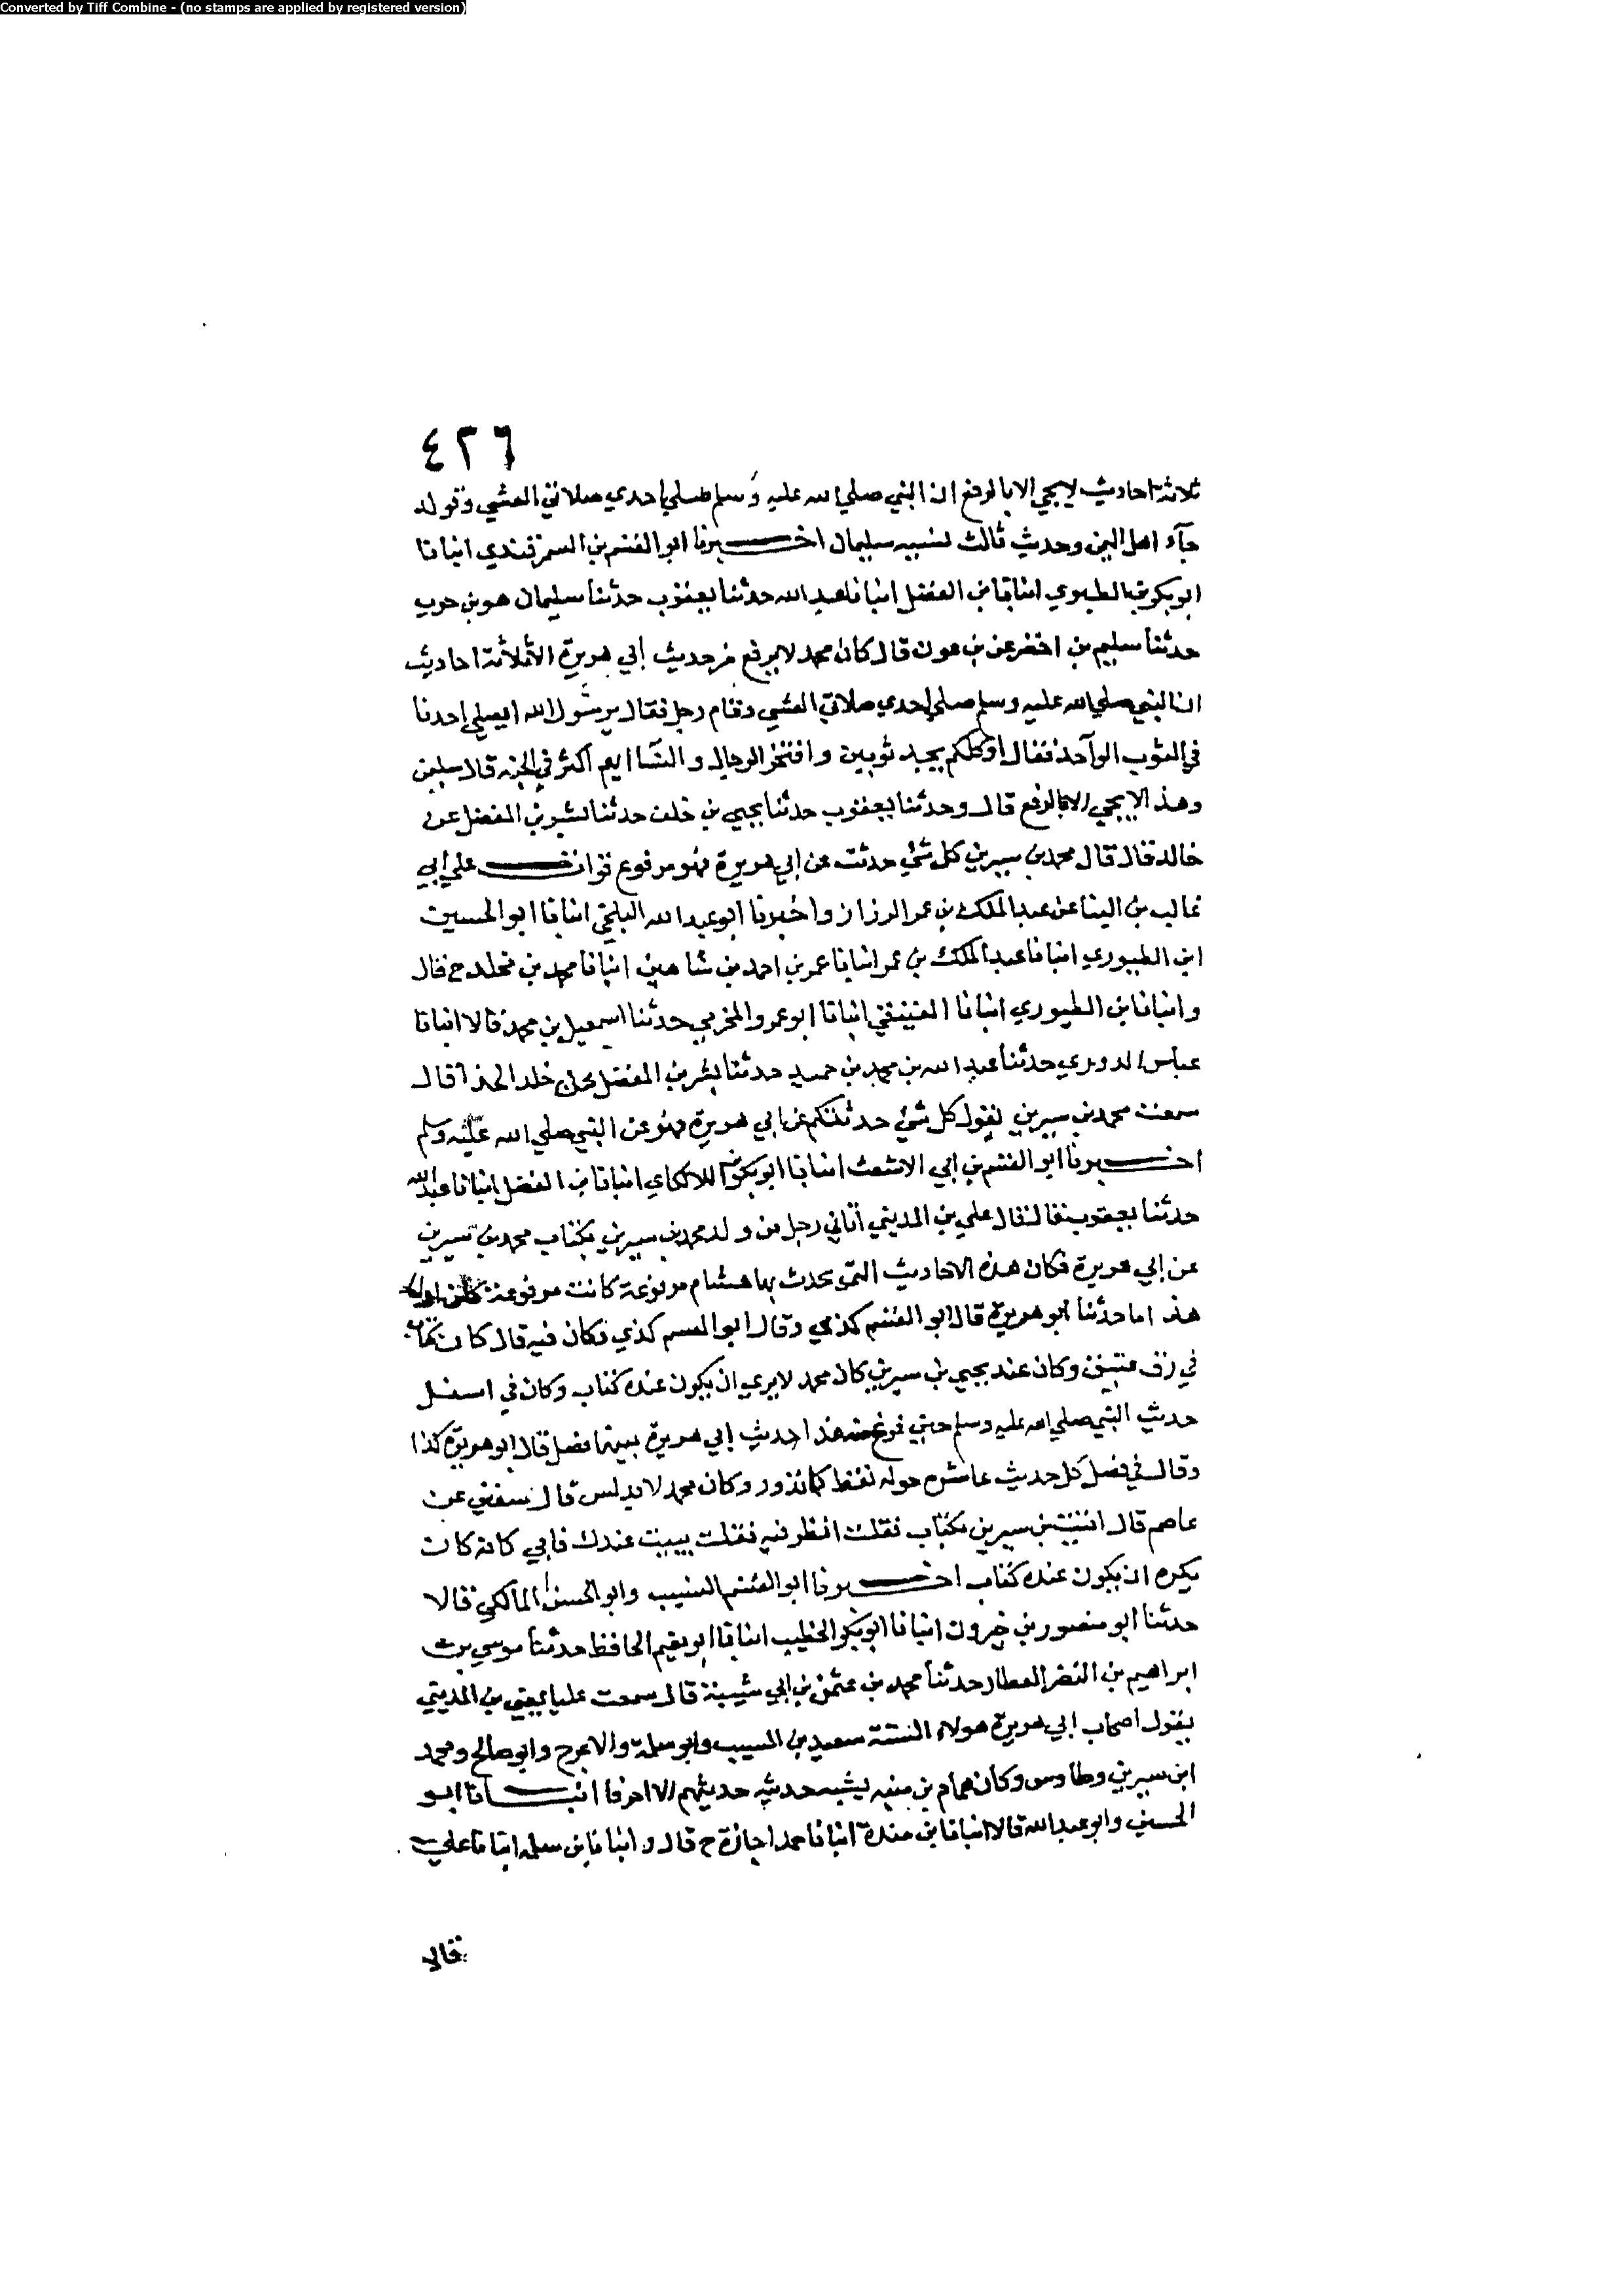 Converted by Tiff Combine - (no stamps are applied by registered version)
٤٢٦
ثلاثة احاديث لا يجي الا بالرفع ان النبي صلي الله عليه وسلم صلي احدي صلاتي العشي وقوله
جآء اهل اليمن وحديث ثالث لنسيه سليمان اخبرنا ابو القسم بن السمرقندي انبانا
ابو بكر بن الطبري انبانا بن الفضل انبانا عبد الله حدثنا يعقوب حدثنا سليمان هو بن حرب
حدثنا سليم بن اخضر عن بن عون قال كان محمد لا يرفع من حديث ابي هريرة الا ثلاثة احاديث
ان النبي صلي الله عليه وسلم صلي احدي صلاتي العشي وقام رجل فقال يرسول الله ايصلي احدنا
في الثوب الواحد فقال اوكلكم يجد ثوبين وافتخر الرجال والنسا ايهم اكثر في الجنه قال سليمن
وهذا لا يجي الا بالرفع قال وحدثنا يعقوب حدثنا يحيي بن خلف حدثنا بشر بن المفضل عن
خالد قال قال محمد بن سيرين كل شي حدثت عن ابي هريرة فهو مرفوع قرانا علي ابي
غالب بن البنا عن عبد الملك بن عمر الرزاز واخبرنا ابو عبد الله البلخي انبانا ابو الحسين
ابن الطيوري انبانا عبد الملك بن عمر انبانا عمر بن احمد بن شاهين انبانا محمد بن مخلد ح قال
وانبانا بن الطيوري انبانا العتيقي انبانا ابو عمرو المخرمي حدثنا اسمعيل بن محمد قالا انبانا
عباس الدوري حدثنا عبد الله بن محمد بن حميد حدثنا بشر بن المفضل عن خلد الحذآ قال
سمعت محمد بن سيرين يقول كل شي حدثتكم عن ابي هريرة فهو عن النبي صلي الله عليه وسلم
اخبرنا ابو القسم بن ابي الاشعث انبانا ابو بكر بن اللالكاي انبانا بن الفضل انبانا عبد الله
حدثنا يعقوب قال قال علي بن المديني اتاني رجل من ولد محمد بن سيرين بكتاب محمد بن سيرين
عن ابي هريرة فكان هذه الاحاديث التي يحدث بها هشام مرفوعة كانت مرفوعة
هذا ما حدثنا ابو هريرة قال ابو القسم كذي وقال ابو القسم كذي فكان فيه قال كان
في رق عتيق وكان عند يحيي بن سيرين كان محمد لا يري ان يكون عنده كتاب وكان في اسفل
حديث النبي صلي الله عليه وسلم حين فرغ منه هذا حديث ابي هريرة بينهما فصل قال ابو هريرة كذا
وقال في فصل كل حديث عاشرم حوله نقط كما تدور وكان محمد لا يدلس قال سفين عن
عاصم قال اتيت بن سيرين بكتاب فقلت انظر فيه فقلت يبيت عندك فابي كانه كان
يكره ان يكون عنده كتاب اخبرنا ابو القسم النسيب وابو الحسن المالكي قالا
حدثنا ابو منصور بن خيرون انبانا ابو بكر الخطيب انبانا ابو نعيم الحافظ حدثنا موسي بن
ابراهيم بن النضر العطار حدثنا محمد بن عثمن بن ابي شيبة قال سمعت عليا يعني بن المديني
يقول اصحاب ابي هريرة هولاء الستة سعيد بن المسيب وابو سلمة والاعرج وابو صالح ومحمد
ابن سيرين وطاوس وكان همام بن منبه يشبه حديثه حديثهم الا احرفا انبانا ابو
الحسين وابو عبد الله قالا انبانا بن مندة انبانا حمد اجازة ح قال وانبانا بن سلمه انبانا علي
قالا